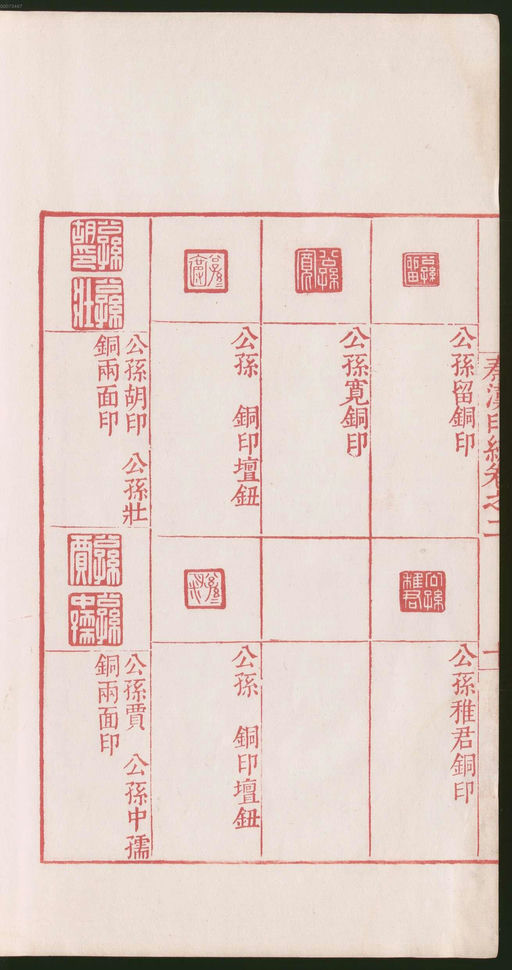 秦漢印統卷之二
公孫留銅印
公孫稚君銅印
公孫寬銅印
公孫　銅印壇鈕
公孫　銅印壇鈕
公孫胡印　公孫壯
銅兩面印
公孫賈　公孫中孺
銅兩面印
00073467